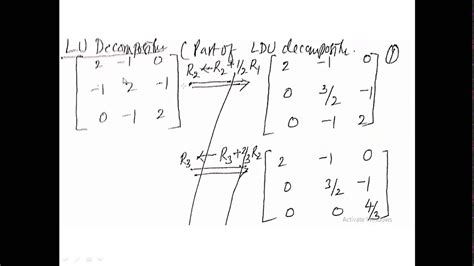 LU Decomposition (Part of LDU decomposition. ①
[2 -1 0
-1 2 -1
0 -1 2]
R₂ ← R₂ + 1/2 R₁
[2 -1 0
0 3/2 -1
0 -1 2]
R₃ ← R₃ + 2/3 R₂
[2 -1 0
0 3/2 -1
0 0 4/3]
Activate Windows